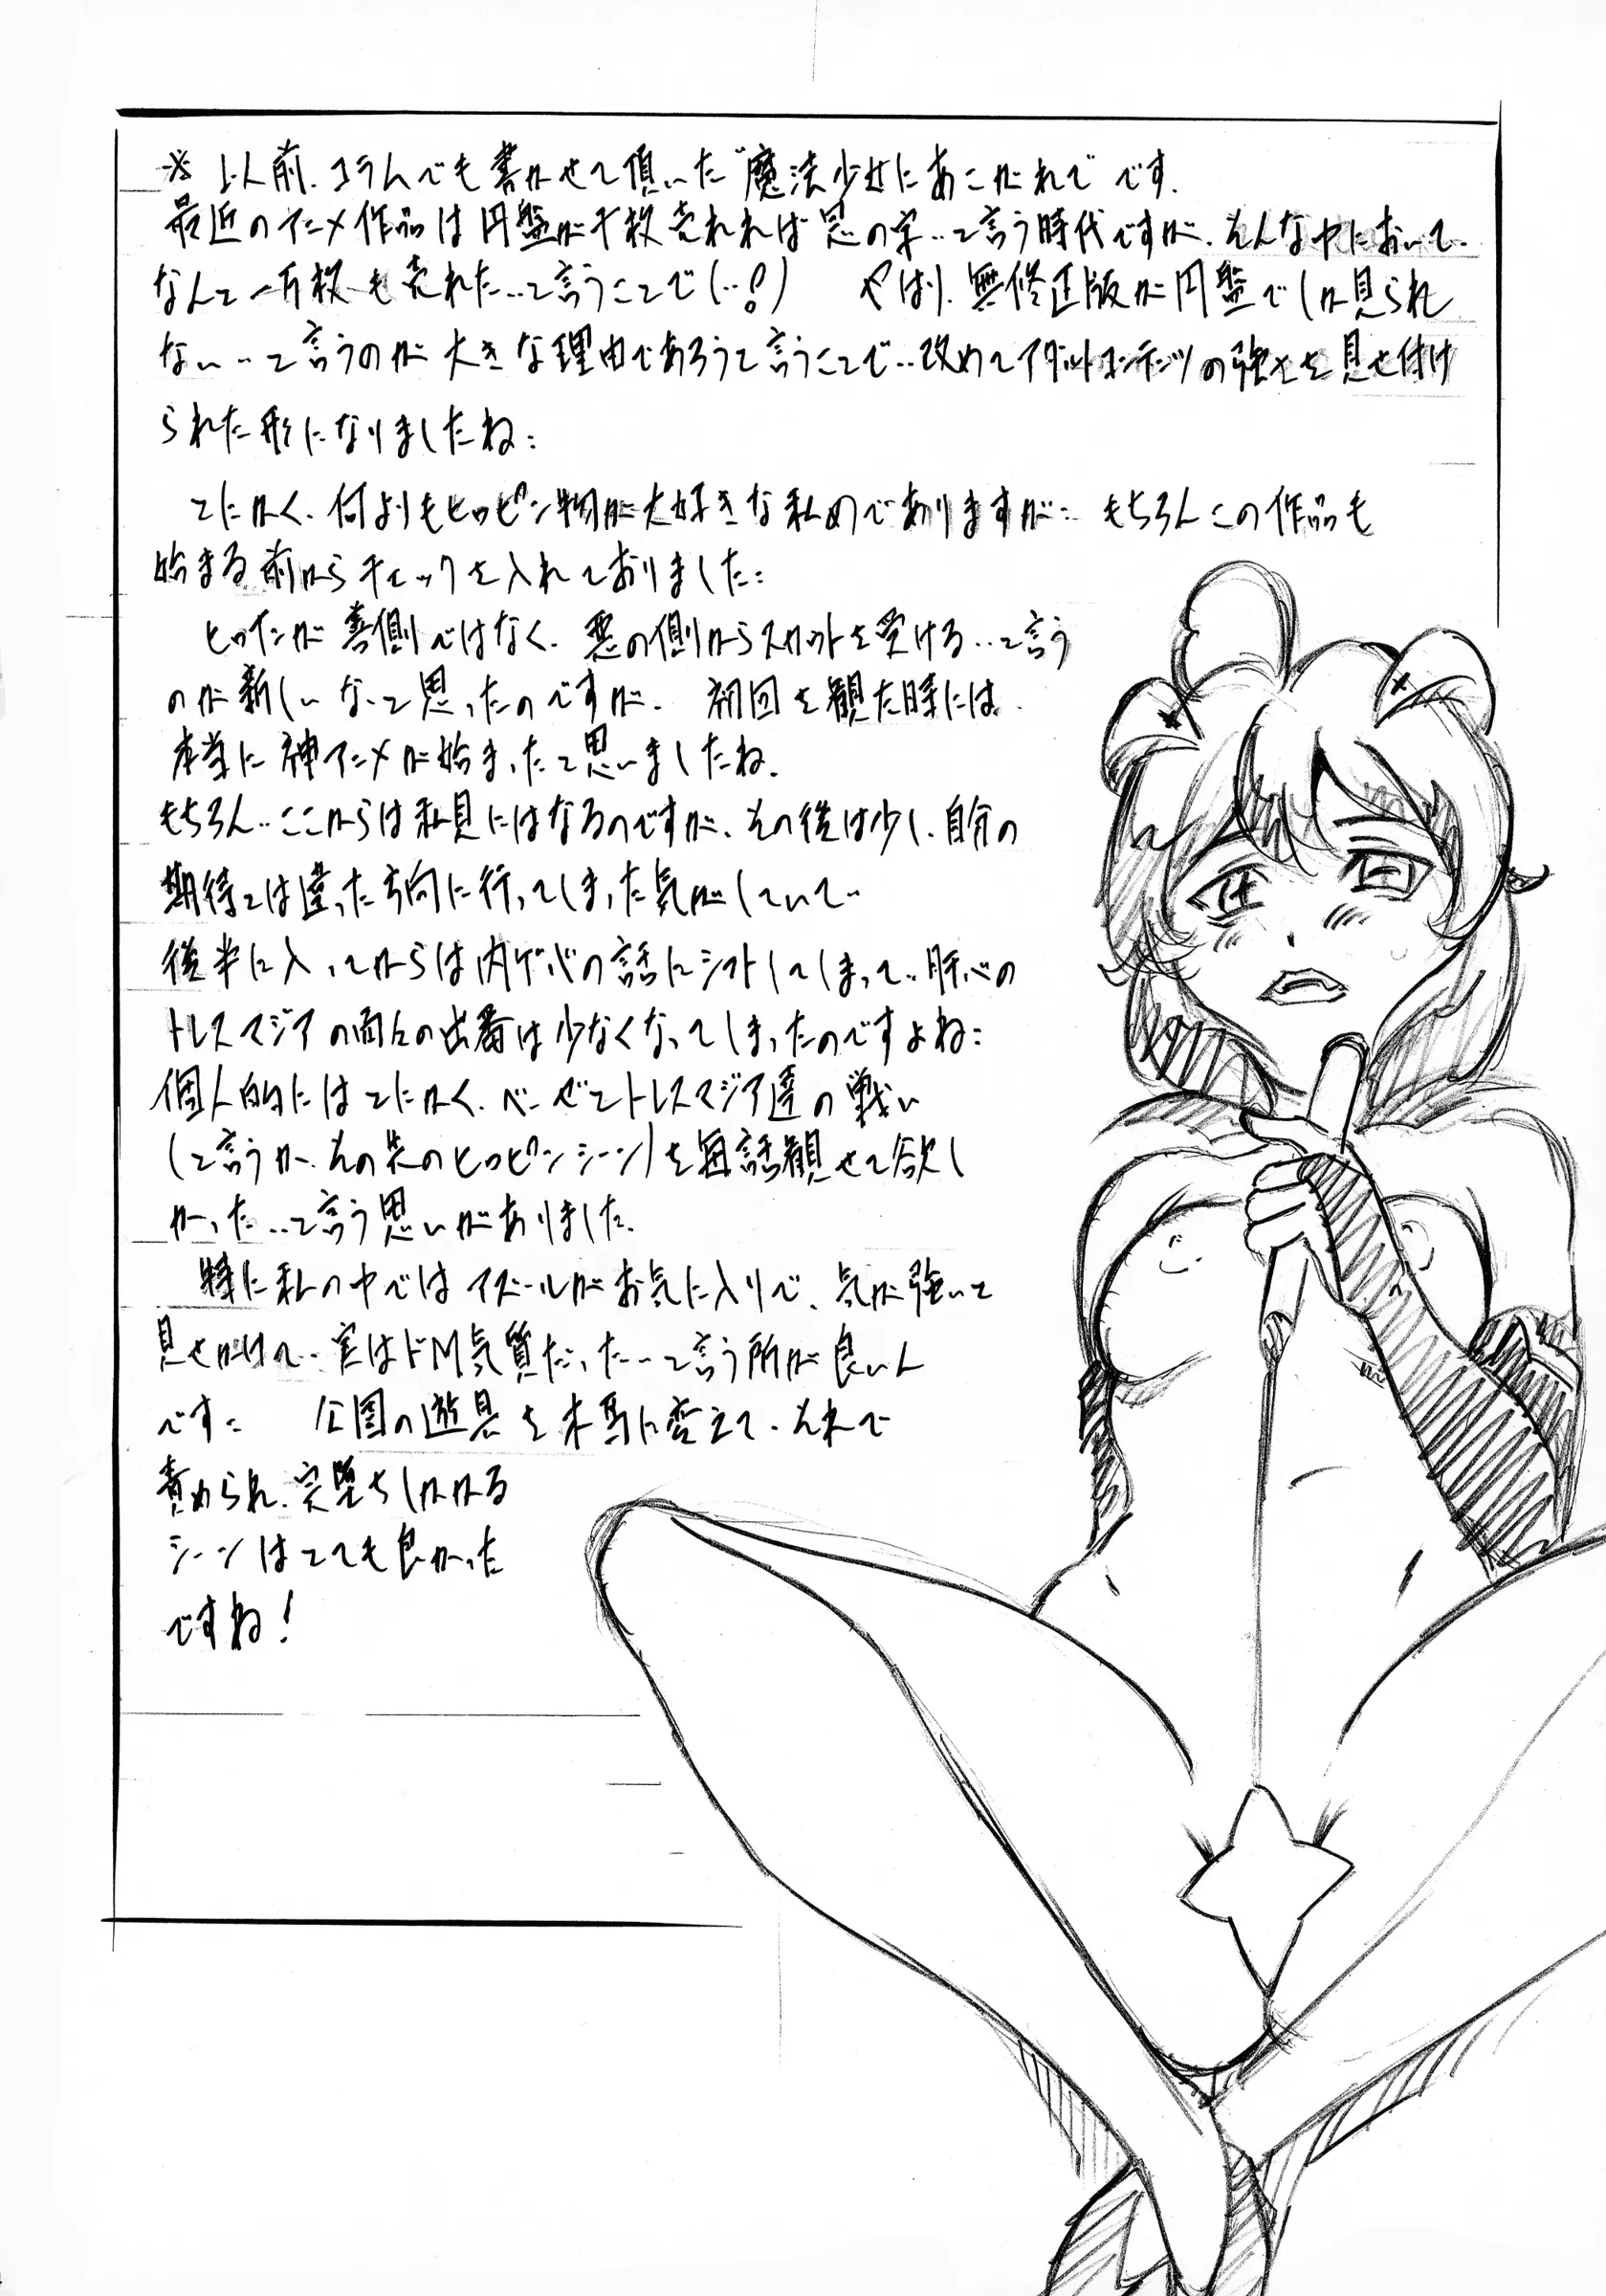 ※ 以前、コラムでも書かせて頂いた"魔法少女にあこがれて"です。
最近のアニメ作品は円盤が千枚売れれば恩の字‥と言う時代ですが、そんな中において、
なんと一万枚も売れた‥と言うことで(‥!) やはり、無修正版が円盤でしか見られ
ない‥と言うのが大きな理由であろうと言うことで‥改めてアダルトコンテンツの強さを見せ付け
られた形になりましたね‥
とにかく、何よりもヒロピン物が大好きな私めでありますが‥ もちろんこの作品も
始まる前からチェックを入れておりました‥
ヒロインが善側ではなく、悪の側からスカウトを受ける‥と言う
のが新しいなっと思ったのですが、初回を観た時には
本当に神アニメが始まったと思いましたね。
もちろん‥ここからは私見にはなるのですが、その後は少し、自分の
期待とは違った方向に行ってしまった気がしていて‥
後半に入ってからは内ゲバの話にシフトしてしまって‥肝心の
トレスマジアの面々の出番は少なくなってしまったのですよね‥
個人的にはとにかく、ベーゼとトレスマジア達の戦い
(と言うか、その先のヒロピンシーン)を毎話観せて欲し
かった‥と言う思いがありました。
特に私の中ではアズールがお気に入りで、気が強いと
見せかけて、実はドM気質だった‥と言う所が良いん
です‥ 公園の遊具を木馬に変えて、それで
責められ、完堕ちしかかる
シーンはとても良かった
ですね!